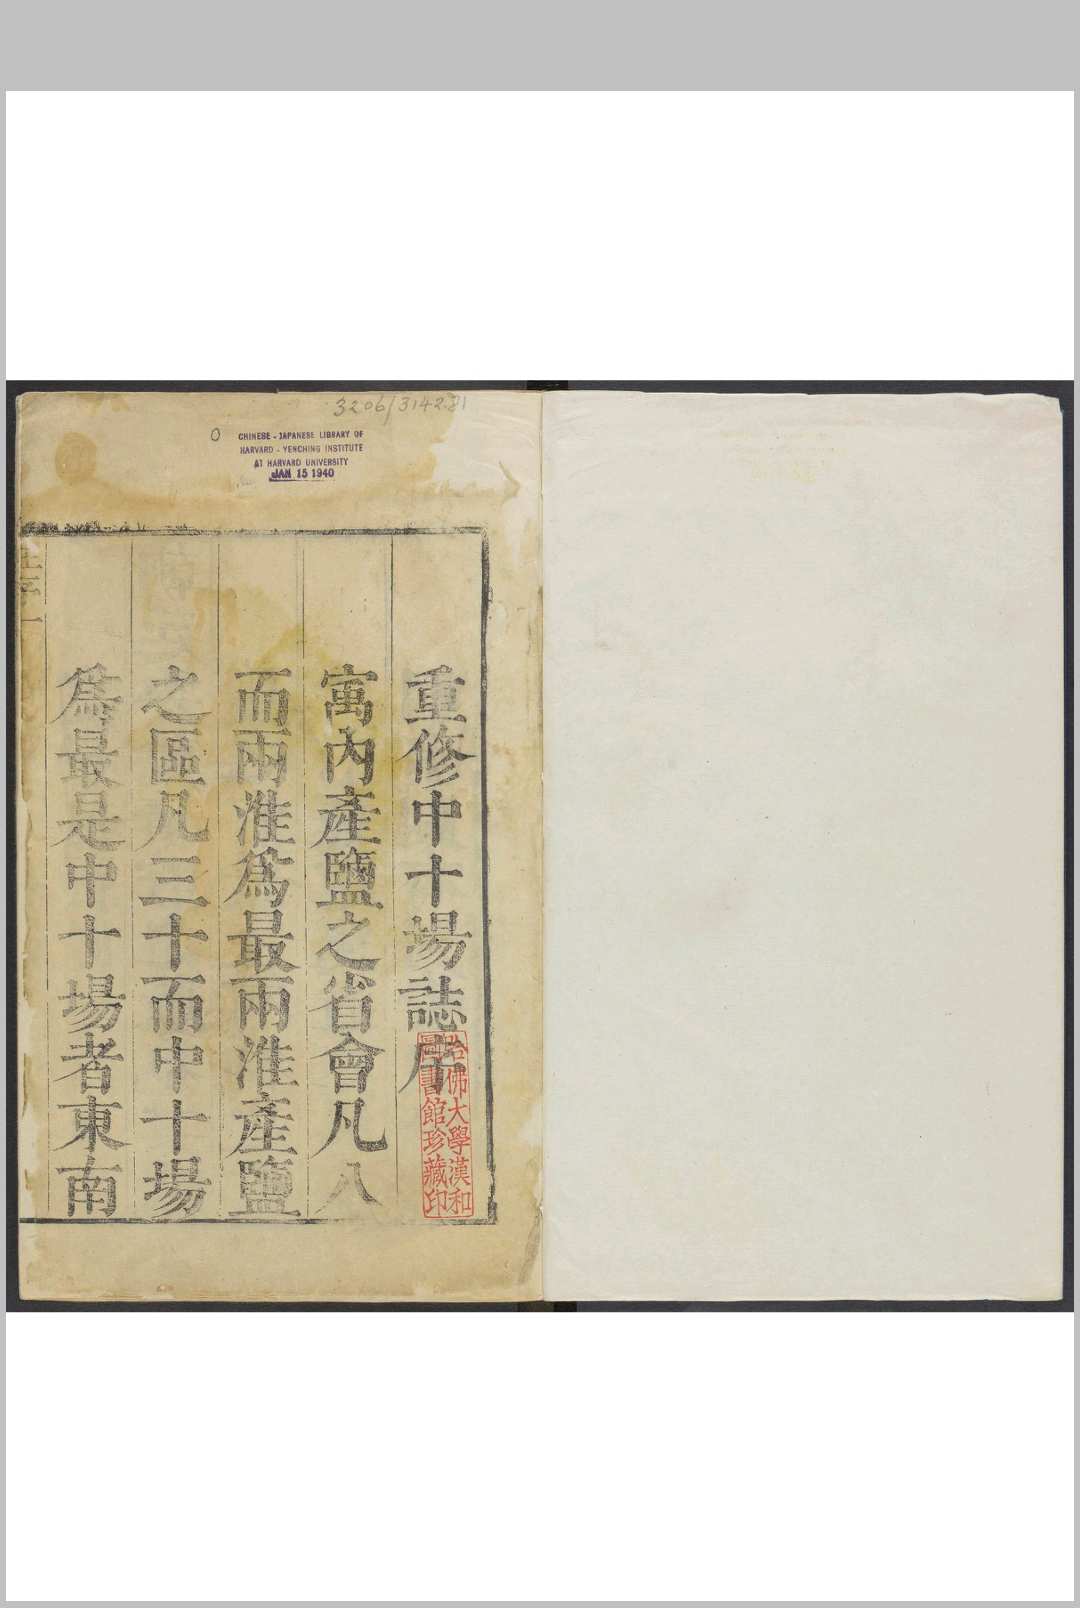 3206/3142.81
CHINESE - JAPANESE LIBRARY OF
HARVARD - YENCHING INSTITUTE
AT HARVARD UNIVERSITY
JAN 15 1940
重修中十場誌序
寓內產鹽之省會凡八
而兩淮爲最兩淮產鹽
之區凡三十而中十場
爲最是中十場者東南
哈佛大學漢和
圖書館珍藏印